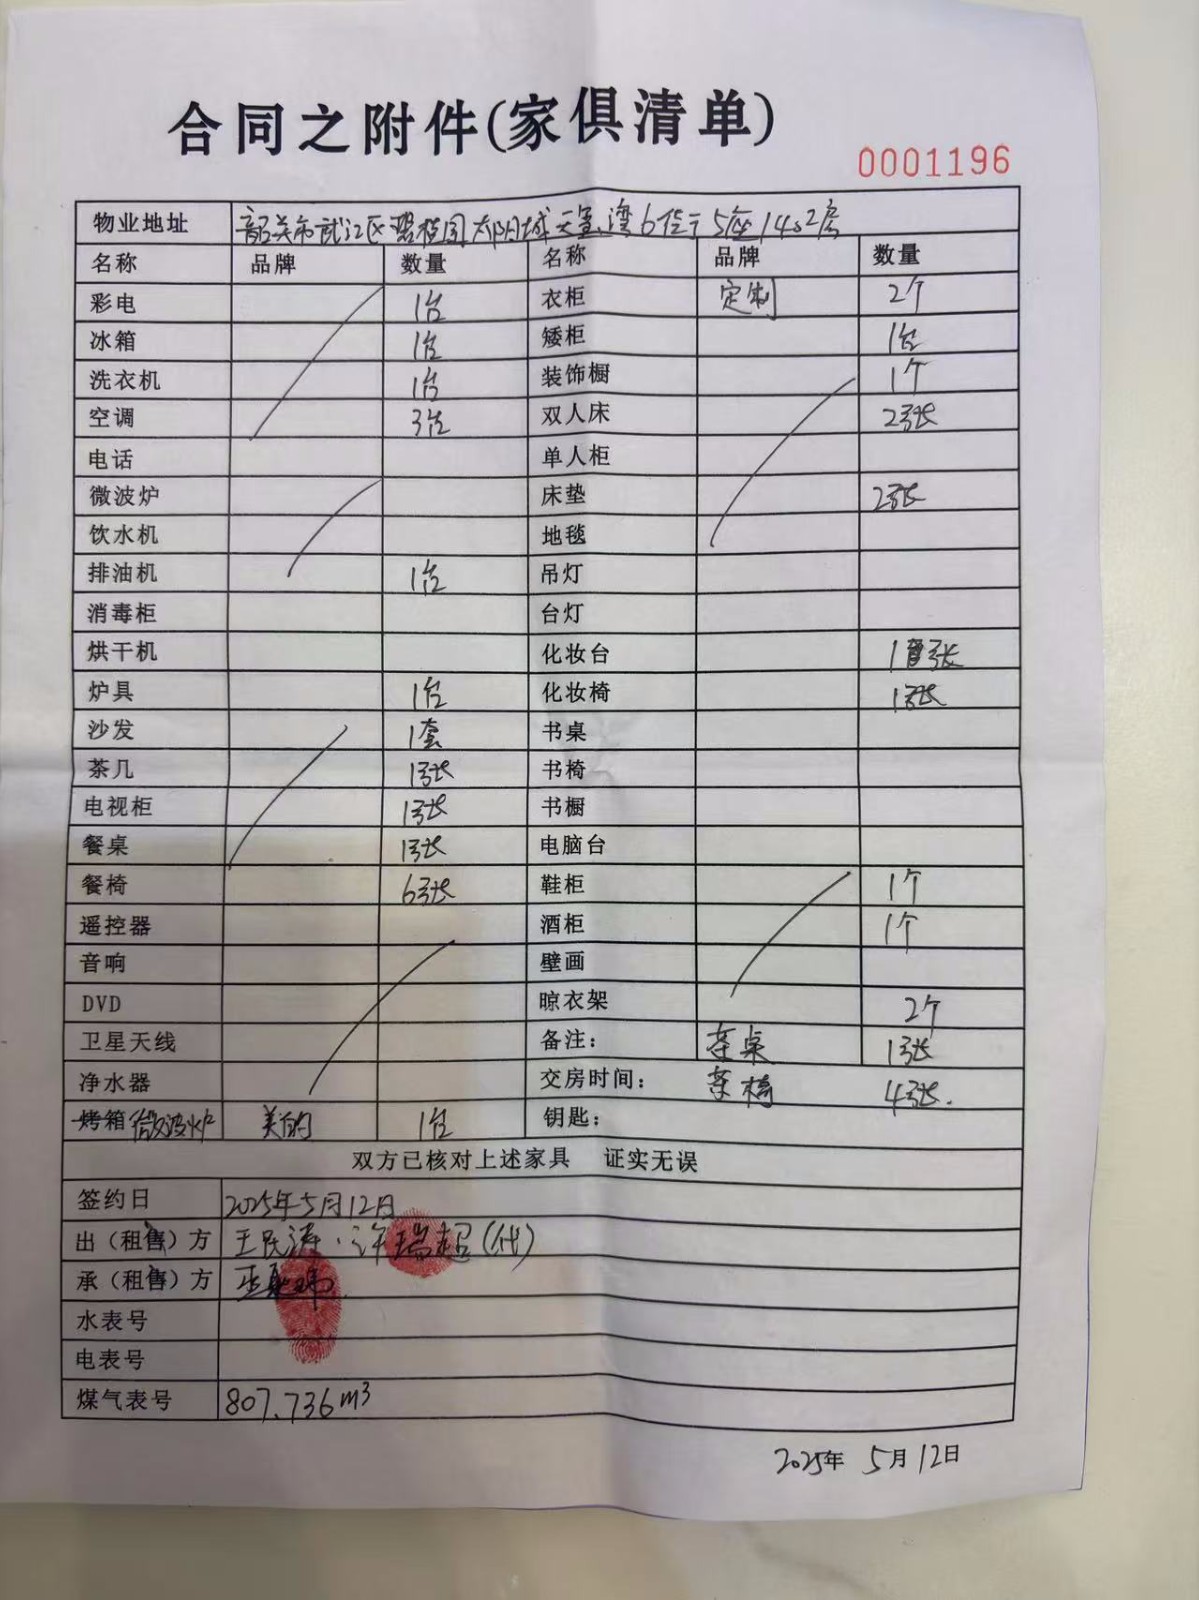 合同之附件(家俱清单)
0001196
物业地址 韶关市武江区碧桂园太阳城天玺湾6街5座1402房
名称 品牌 数量 名称 品牌 数量
彩电 1台 衣柜 定制 2个
冰箱 1台 矮柜 1台
洗衣机 1台 装饰橱 1个
空调 3台 双人床 2张
电话 单人柜
微波炉 床垫 2张
饮水机 地毯
排油机 1台 吊灯
消毒柜 台灯
烘干机 化妆台 1张
炉具 1台 化妆椅 1张
沙发 1套 书桌
茶几 1张 书椅
电视柜 1张 书橱
餐桌 1张 电脑台
餐椅 6张 鞋柜 1个
遥控器 酒柜 1个
音响 壁画
DVD 晾衣架 2个
卫星天线 备注: 茶桌 1张
净水器 交房时间: 茶椅 4张.
烤箱 微波炉 美的 1台 钥匙:
双方已核对上述家具 证实无误
签约日 2025年5月12日
出(租售)方 王民涛·许瑞超(代)
承(租售)方
水表号
电表号
煤气表号 807.736m³
2025年 5月12日